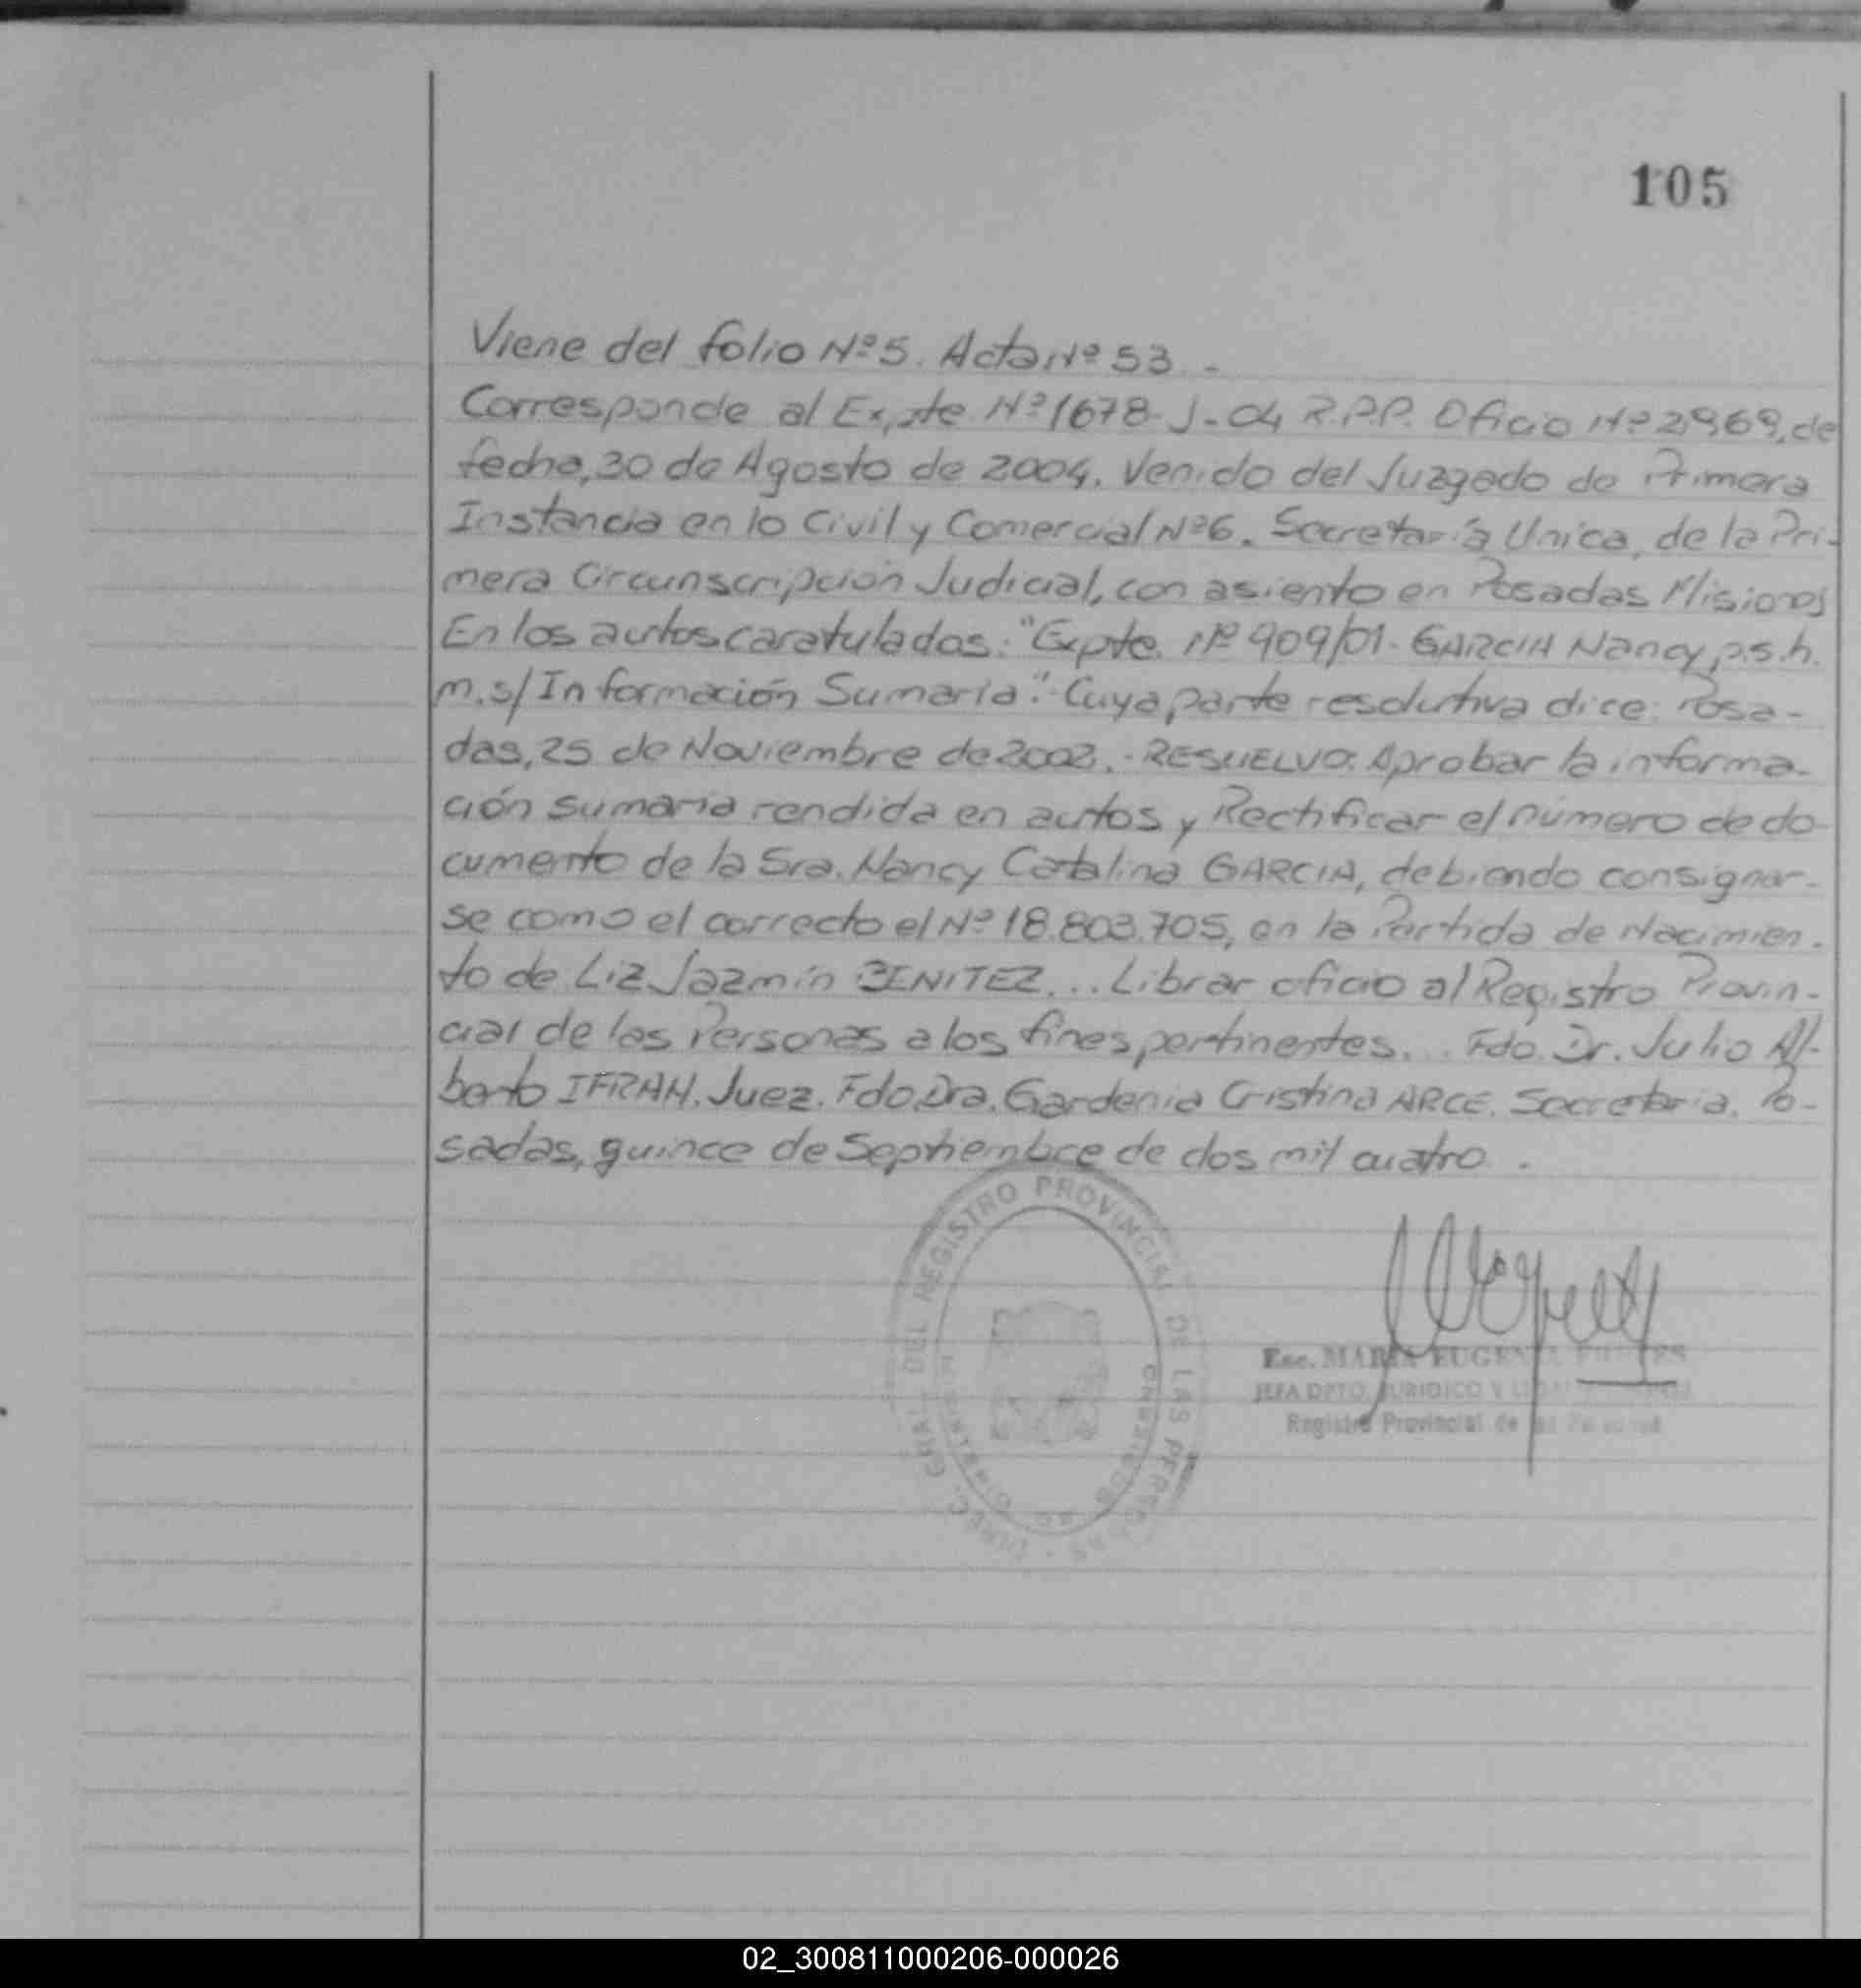 105
Viene del folio Nº5. Acta Nº 53.-
Corresponde al Expte Nº 1678-J-04 R.P.P. Oficio Nº 2969, de
fecha, 30 de Agosto de 2004. Venido del Juzgado de Primera
Instancia en lo Civil y Comercial Nº6. Secretaría Unica, de la Pri-
mera Circunscripción Judicial, con asiento en Posadas Misiones
En los autos caratulados: "Expte. Nº 909/01. GARCIA Nancy p.s.h.
m.s/ Información Sumaria".- Cuya parte resolutiva dice: Posa-
das, 25 de Noviembre de 2002.- RESUELVO: Aprobar la informa-
ción sumaria rendida en autos y Rectificar el número de do-
cumento de la Sra. Nancy Catalina GARCIA, debiendo consignar-
se como el correcto el Nº 18.803.705, en la Partida de Nacimien-
to de Liz Jazmín BENITEZ... Librar oficio al Registro Provin-
cial de las Personas a los fines pertinentes... Fdo. Dr. Julio Al-
berto IFRAN. Juez. Fdo Dra. Gardenia Cristina ARCE. Secretaria. Po-
sadas, quince de Septiembre de dos mil cuatro.
DIREC. GRAL. DEL REGISTRO PROVINCIAL DE LAS PERSONAS
MINISTERIO DE GOBIERNO
Esc. MARIA EUGENIA
JEFA DPTO. JURIDICO Y
Registro Provincial de las Personas
02_300811000206-000026